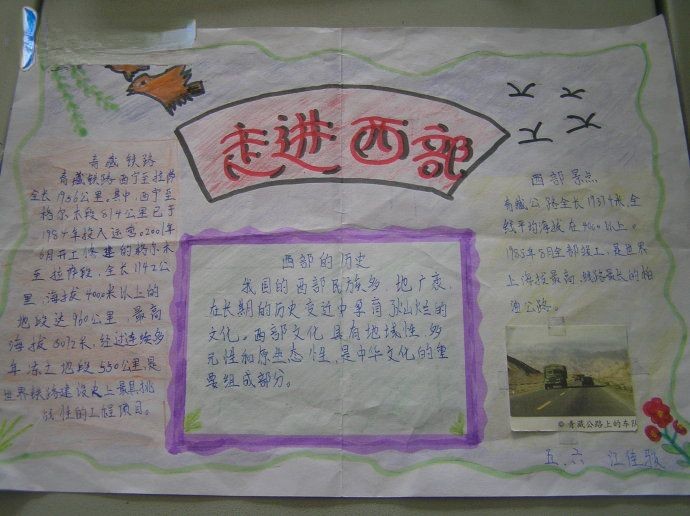 走进西部
青藏铁路
青藏铁路西宁至拉萨
全长1956公里。其中,西宁至
格尔木段814公里已于
1984年投入运营。2001年
6月开工修建的格尔木
至拉萨段,全长1142公
里,海拔4000米以上的
地段达960公里,最高
海拔5072米,经过连续多
年冻土地段550公里,是
世界铁路建设史上最具挑
战性的工程项目。
西部的历史
我国的西部民族多,地广度,
在长期的历史变迁中孕育了灿烂的
文化。西部文化具有地域性、多
元性和原生态性,是中华文化的重
要组成部分。
西部景点
青藏公路全长1937千米,全
线平均海拔在4000以上。
1985年8月全部竣工,是世界
上海拔最高、线路最长的柏
油公路。
青藏公路上的车队
五、六 江佳